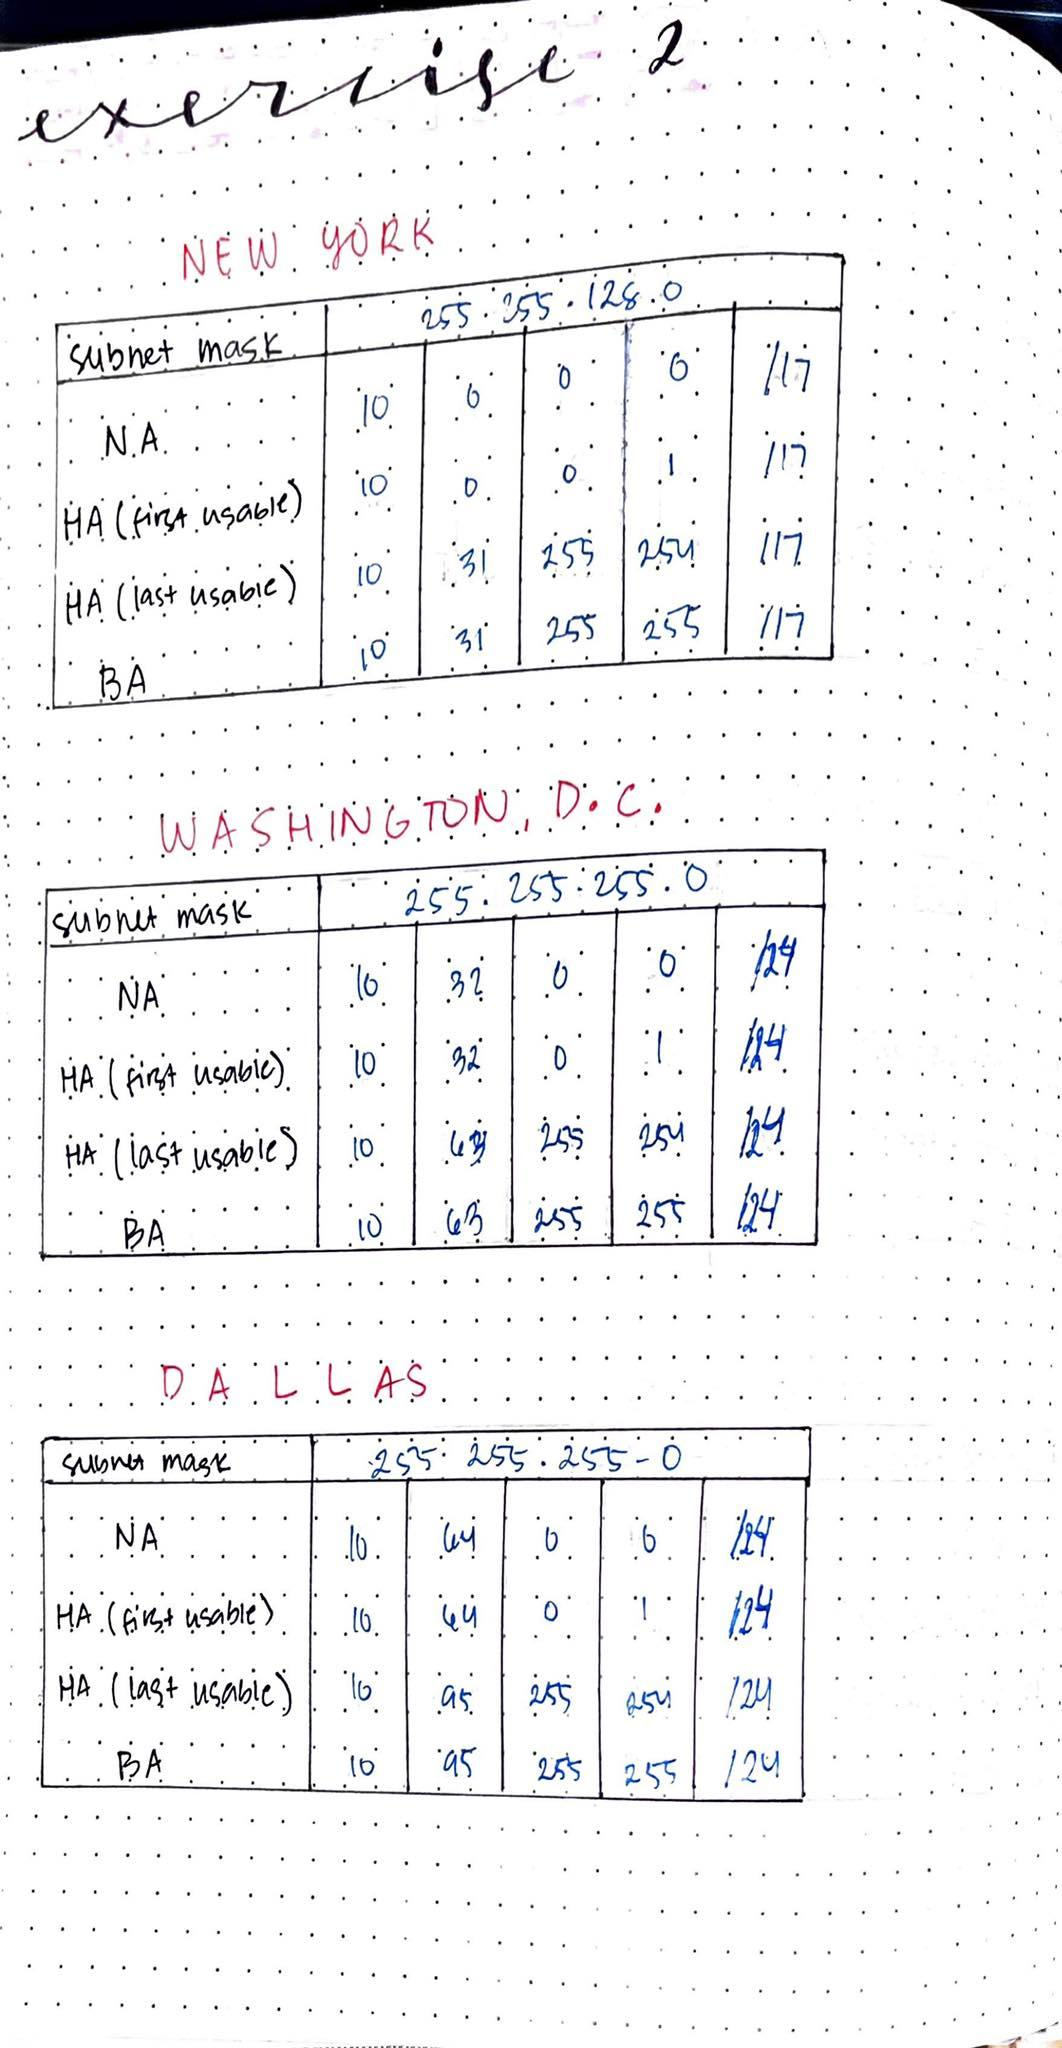 exercise 2
NEW YORK
subnet mask 255.255.128.0
NA 10 0 0 0 /17
HA (first usable) 10 0 0 1 /17
HA (last usable) 10 31 255 254 /17
BA 10 31 255 255 /17
WASHINGTON, D.C.
subnet mask 255.255.255.0
NA 10 32 0 0 /24
HA (first usable) 10 32 0 1 /24
HA (last usable) 10 63 255 254 /24
BA 10 63 255 255 /24
DALLAS
subnet mask 255.255.255-0
NA 10 64 0 0 /24
HA (first usable) 10 64 0 1 /24
HA (last usable) 10 95 255 254 /24
BA 10 95 255 255 /24